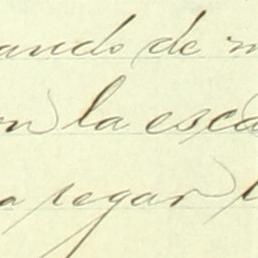 ando de m
on la esca
a pegar l